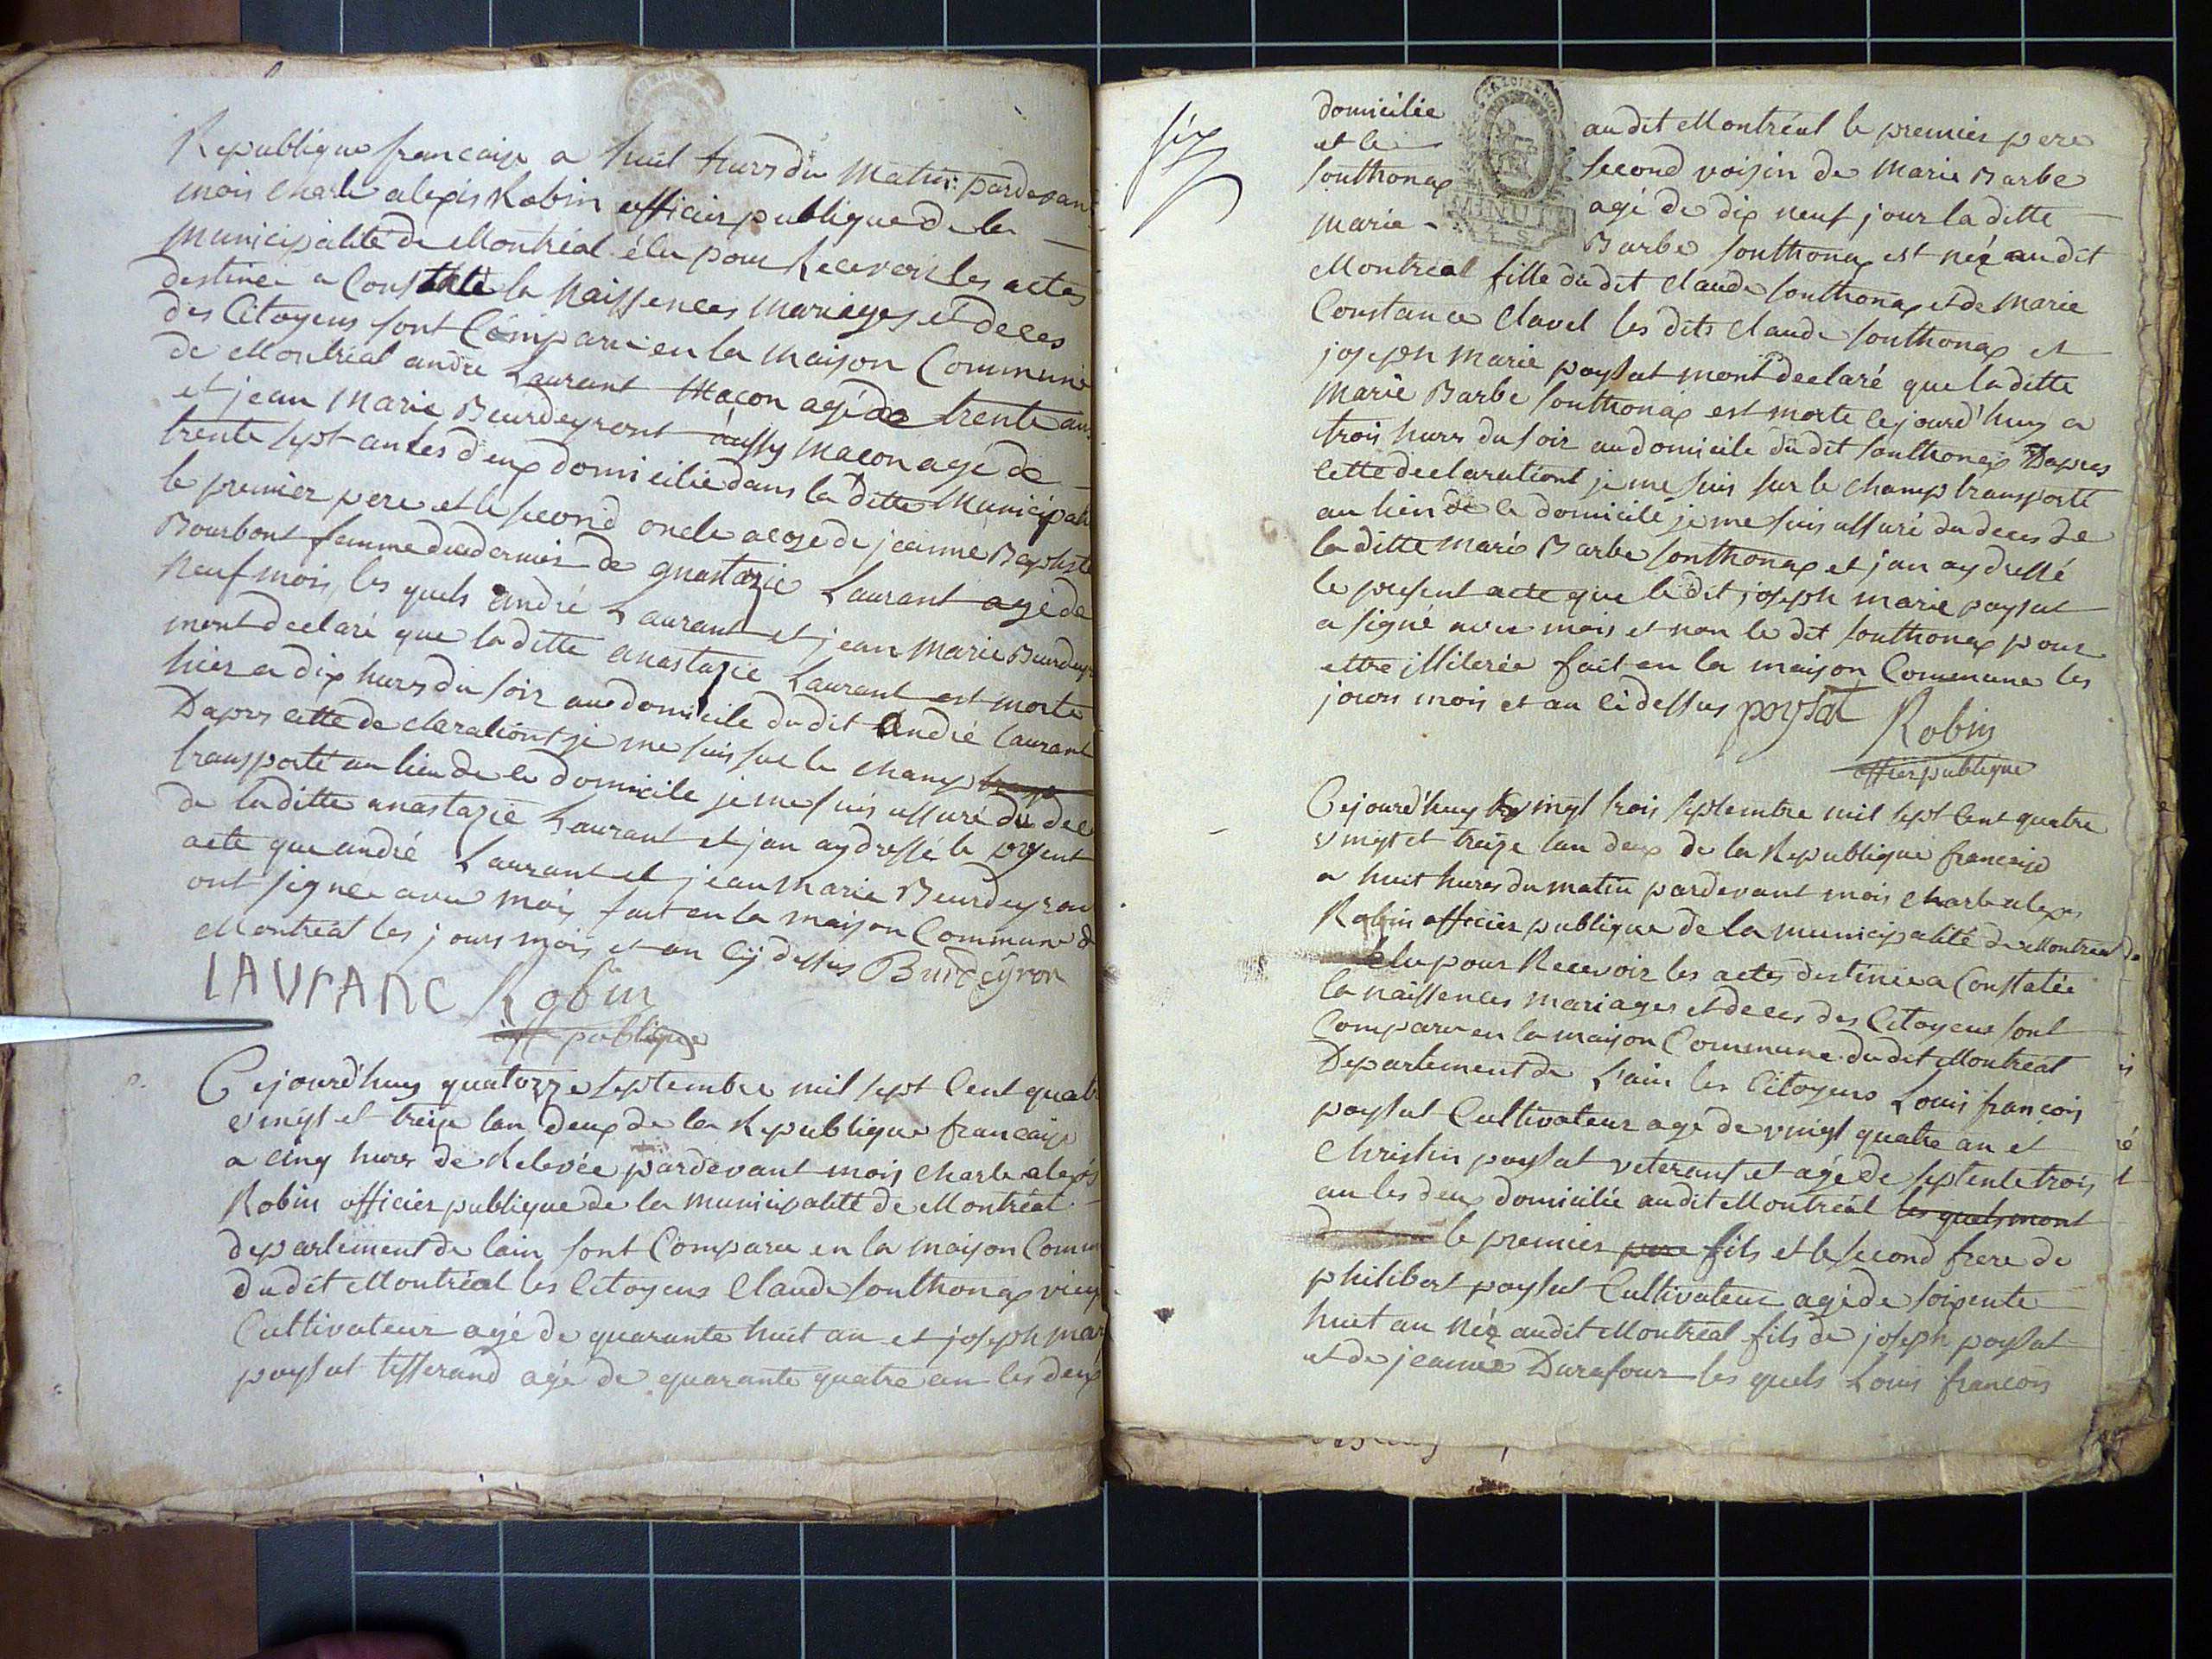 Republique francaise a huit hurs du matin pardevant
mois Charle alexis Robin officier publique de la
municipalité de Montréal élu pour Recevoir les actes
destinée a Constaté la Naissences mariages et deces
des Citoyens sont Comparu en la maison Commune
de Montréal andré Laurant Maçon agé de trente ans
et jean Marie Beurdeyront aussy macon agé de
trente sept an les deux domicilié dans la ditte Municipali
le premier pere et le second oncle a cose de jeanne Baptiste
Bourbont femme du dernier de gnastazie Laurant agé de
Neuf mois, les quels andré Laurant et jean Marie Beurdey
mont declaré que la ditte anastazie Laurant est morte
hier a dix hurs du soir au domicile du dit André Laurant
Dapres cette declarationt je me suis sur le champ
transporté au lieu de ce domicile je me suis assuré du dec
de la ditte anastazie Laurant et jan ay dressé le presant
acte que andré Laurant et jean marie Beurdeyron
ont signée avec mois fait en la maison Commune d
Montréal les jours mois et an cy dessus Burdeyron
LAURANC Robin
off publique
Cejourd'huy quatorze septembre mil sept Cent quatr
vingt et treize lan deux de la Republique francaise
a cinq hures de Relevée pardevant mois Charle alexis
Robin officier publique de la municipalité de Montréal
departement de lain sont Comparu en la maison Comm
dudit Montréal les Citoyens Claude Sonthonax vieux
Cultivateur agé de quarante huit an et joseph mar
paysat tisserand agé de quarante quatre an les deux
six
domicilie audit Montréal le premier pere
et le second voisin de Marie Barbe
Sonthonax agé de dix neuf jour la ditte
Marie Barbe Sonthonax est néz audit
Montréal fille du dit Claude Sonthonax et de Marie
Constance Clavel les dits Claude Sonthonax et
joseph Marie paysat mont declaré que la ditte
Marie Barbe Sonthonax est morte cejourd'huy a
trois hurs du soir au domicile du dit Sonthonax Dapres
cette declarationt je me suis sur le champ transporté
au lieu de ce domicile je me suis assuré du deces de
la ditte Marie Barbe Sonthonax et jan ay dressé
le present acte que le dit joseph marie paysat
a signé avec mois et non le dit Sonthonax pour
ettre illiterée fait en la maison Commune les
jours mois et an cidessus poysat Robin
offier publique
Cejourd'huy vingt trois septembre mil sept Cent quatre
vingt et treize lan deux de la Republique francaise
a huit hures du matin pardevant mois Charle alexis
Robin officier publique de la municipalité de Montréal
élu pour Recevoir les actes destinée a Constatée
la naissences mariages et deces des Citoyens sont
Comparu en la maison Commune du dit Montréal
Departement de L'ain les Citoyens Louis francois
paysat Cultivateur agé de vingt quatre an et
Christin paysat veterant et agé de septente trois
an les deux domicilié audit Montréal les quels mont
le premier pere fils et le second frere de
philibert paysat Cultivateur agé de soixente
huit an néz audit Montréal fils de joseph paysat
et de jeanne Durafour les quels Louis francois